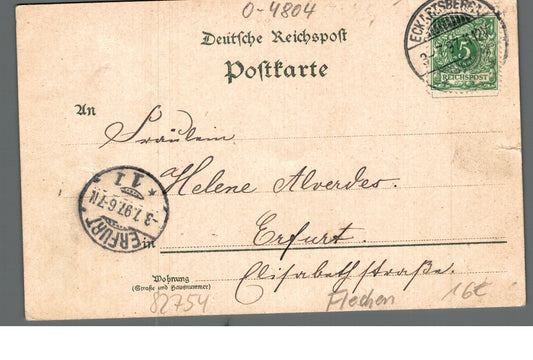 O-4804
Deutsche Reichspost
Postkarte
ECKARTSBERGA
5
REICHSPOST
An
Fräulein
Helene Alverdes.
ERFURT
11
-3.7.97.6-7N.
in Erfurt.
Wohnung
(Straße und Hausnummer)
Elisabethstraße.
82754
Flecken
16€